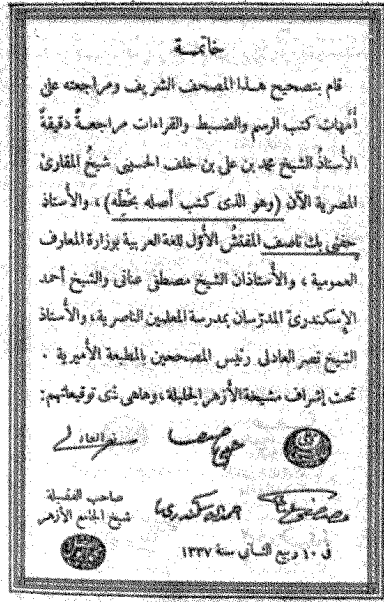 خاتمة
قام بتصحيح هذا المصحف الشريف ومراجعته على
أمهات كتب الرسم والضبط والقراءات مراجعةً دقيقةً
الأستاذُ الشيخ محمد بن على بن خلف الحسينى شيخُ المقارئ
المصرية الآن (وهو الذى كتب أصله بخطِّه)، والأستاذ
حفنى بك ناصف المفتشُ الأوّل للغة العربية بوزارة المعارف
العمومية، والأستاذان الشيخ مصطفى عنانى والشيخ أحمد
الإسكندرىّ المدرّسان بمدرسة المعلمين الناصرية، والأستاذ
الشيخ نصر العادلى رئيس المصححين بالمطبعة الأميرية.
تحت إشراف مشيخة الأزهر الجليلة، وهاهى ذى توقيعاتهم:
نصر العادلى
صاحب الفضيلة
شيخ الجامع الأزهر
فى ١٠ ربيع الثانى سنة ١٣٣٧